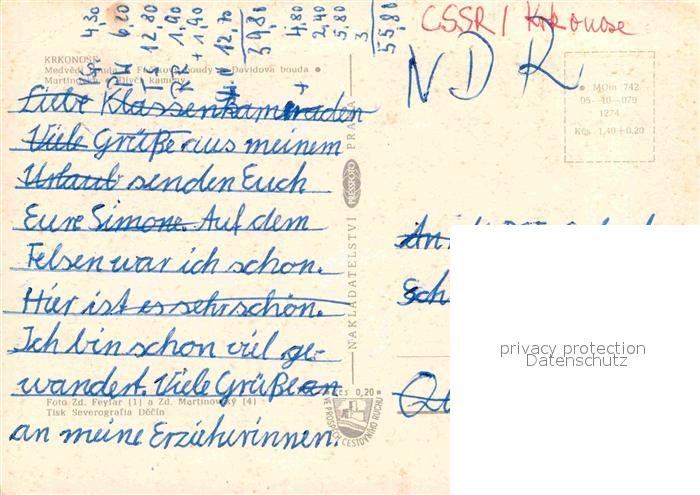 4,30
6,20
12,80
1,90
+ 1,90
12,70
39,80
4,80
2,40
+ 5,80
3
55,80
CSSR / Krkonose
NDR
KRKONOŠE
Medvědí bouda • boudy • Davidova bouda •
Martinovka • Dívčí kameny
MOm 742
05-10-079
1274
Kčs 1,40+0,20
Liebe Klassenkameraden
Viele Grüße aus meinem
Urlaub senden Euch
Eure Simone. Auf dem
Felsen war ich schon.
Hier ist es sehr schön.
Ich bin schon viel ge-
wandert. Viele Grüße an
an meine Erzieherinnen.
NAKLADATELSTVÍ PRESSFOTO PRAHA
An
Sch
Foto Zd. Feyfar [1] a Zd. Martinovský [4]
Tisk Severografia Děčín
Kčs 0,20
VE PROSPĚCH CESTOVNÍHO RUCHU
privacy protection
Datenschutz